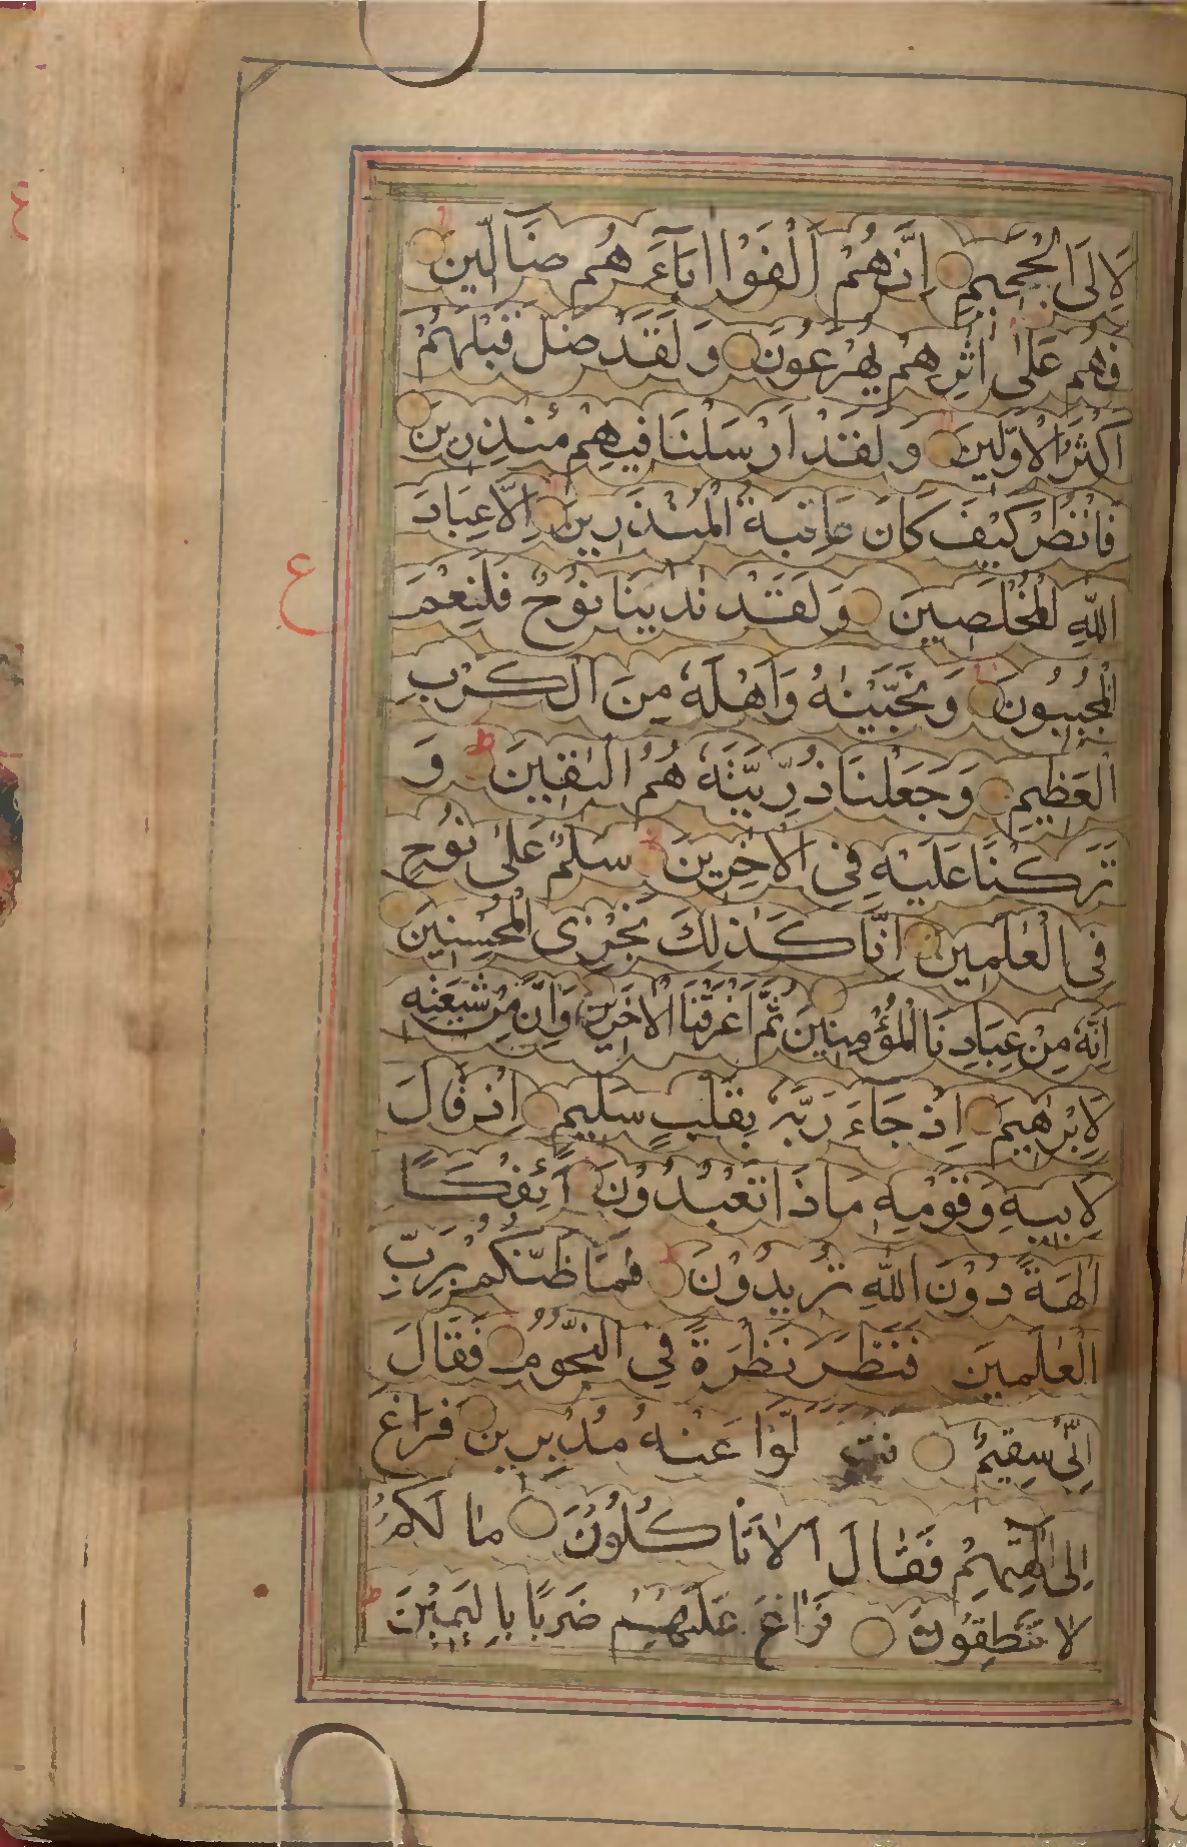 لَاِلَى الْجَحِيمِ اِنَّهُمْ اَلْفَوْا اٰبَآءَ هُمْ ضَآلِّينَ
فَهُمْ عَلٰى اٰثٰرِهِمْ يُهْرَعُونَ وَ لَقَدْ ضَلَّ قَبْلَهُمْ
اَكْثَرُ الْاَوَّلِينَ وَ لَقَدْ اَرْسَلْنَا فِيهِمْ مُنْذِرِينَ
فَانْظُرْ كَيْفَ كَانَ عَاقِبَةُ الْمُنْذَرِينَ اِلَّا عِبَادَ
اللّٰهِ الْمُخْلَصِينَ وَ لَقَدْ نَادٰينَا نُوْحٌ فَلَنِعْمَ
الْمُجِيبُونَ وَ نَجَّيْنٰهُ وَ اَهْلَهٗ مِنَ الْكَرْبِ
الْعَظِيمِ وَ جَعَلْنَا ذُرِّيَّتَهٗ هُمُ الْبٰقِينَ وَ
تَرَكْنَا عَلَيْهِ فِى الْاٰخِرِينَ سَلٰمٌ عَلٰى نُوْحٍ
فِى الْعٰلَمِينَ اِنَّا كَذٰلِكَ نَجْزِى الْمُحْسِنِينَ
اِنَّهٗ مِنْ عِبَادِنَا الْمُؤْمِنِينَ ثُمَّ اَغْرَقْنَا الْاٰخَرِينَ وَ اِنَّ مِنْ شِيعَتِهٖ
لَاِبْرٰهِيمَ اِذْ جَآءَ رَبَّهٗ بِقَلْبٍ سَلِيمٍ اِذْ قَالَ
لِاَبِيهِ وَ قَوْمِهٖ مَاذَا تَعْبُدُوْنَ اَئِفْكًا
اٰلِهَةً دُوْنَ اللّٰهِ تُرِيدُوْنَ فَمَا ظَنُّكُمْ بِرَبِّ
الْعٰلَمِينَ فَنَظَرَ نَظْرَةً فِي النُّجُوْمِ فَقَالَ
اِنِّى سَقِيمٌ فَتَ لَّوْا عَنْهُ مُدْبِرِينَ فَرَاغَ
اِلٰى اٰلِهَتِهِمْ فَقَالَ اَلَا تَاْكُلُوْنَ مَا لَكُمْ
لَا تَنْطِقُوْنَ فَرَاغَ عَلَيْهِمْ ضَرْبًا بِالْيَمِيْنِ
ع